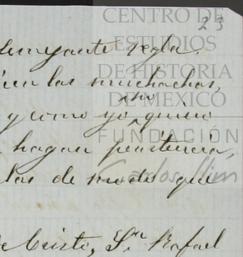 23
CENTRO DE
ESTUDIOS
DE HISTORIA
DE MÉXICO
FUNDACIÓN
Carlos Slim
semejante regla.
las muchachas,
no
y como yo quiero
hagan penitencia,
de modo que
Cristo, Sn. Rafael